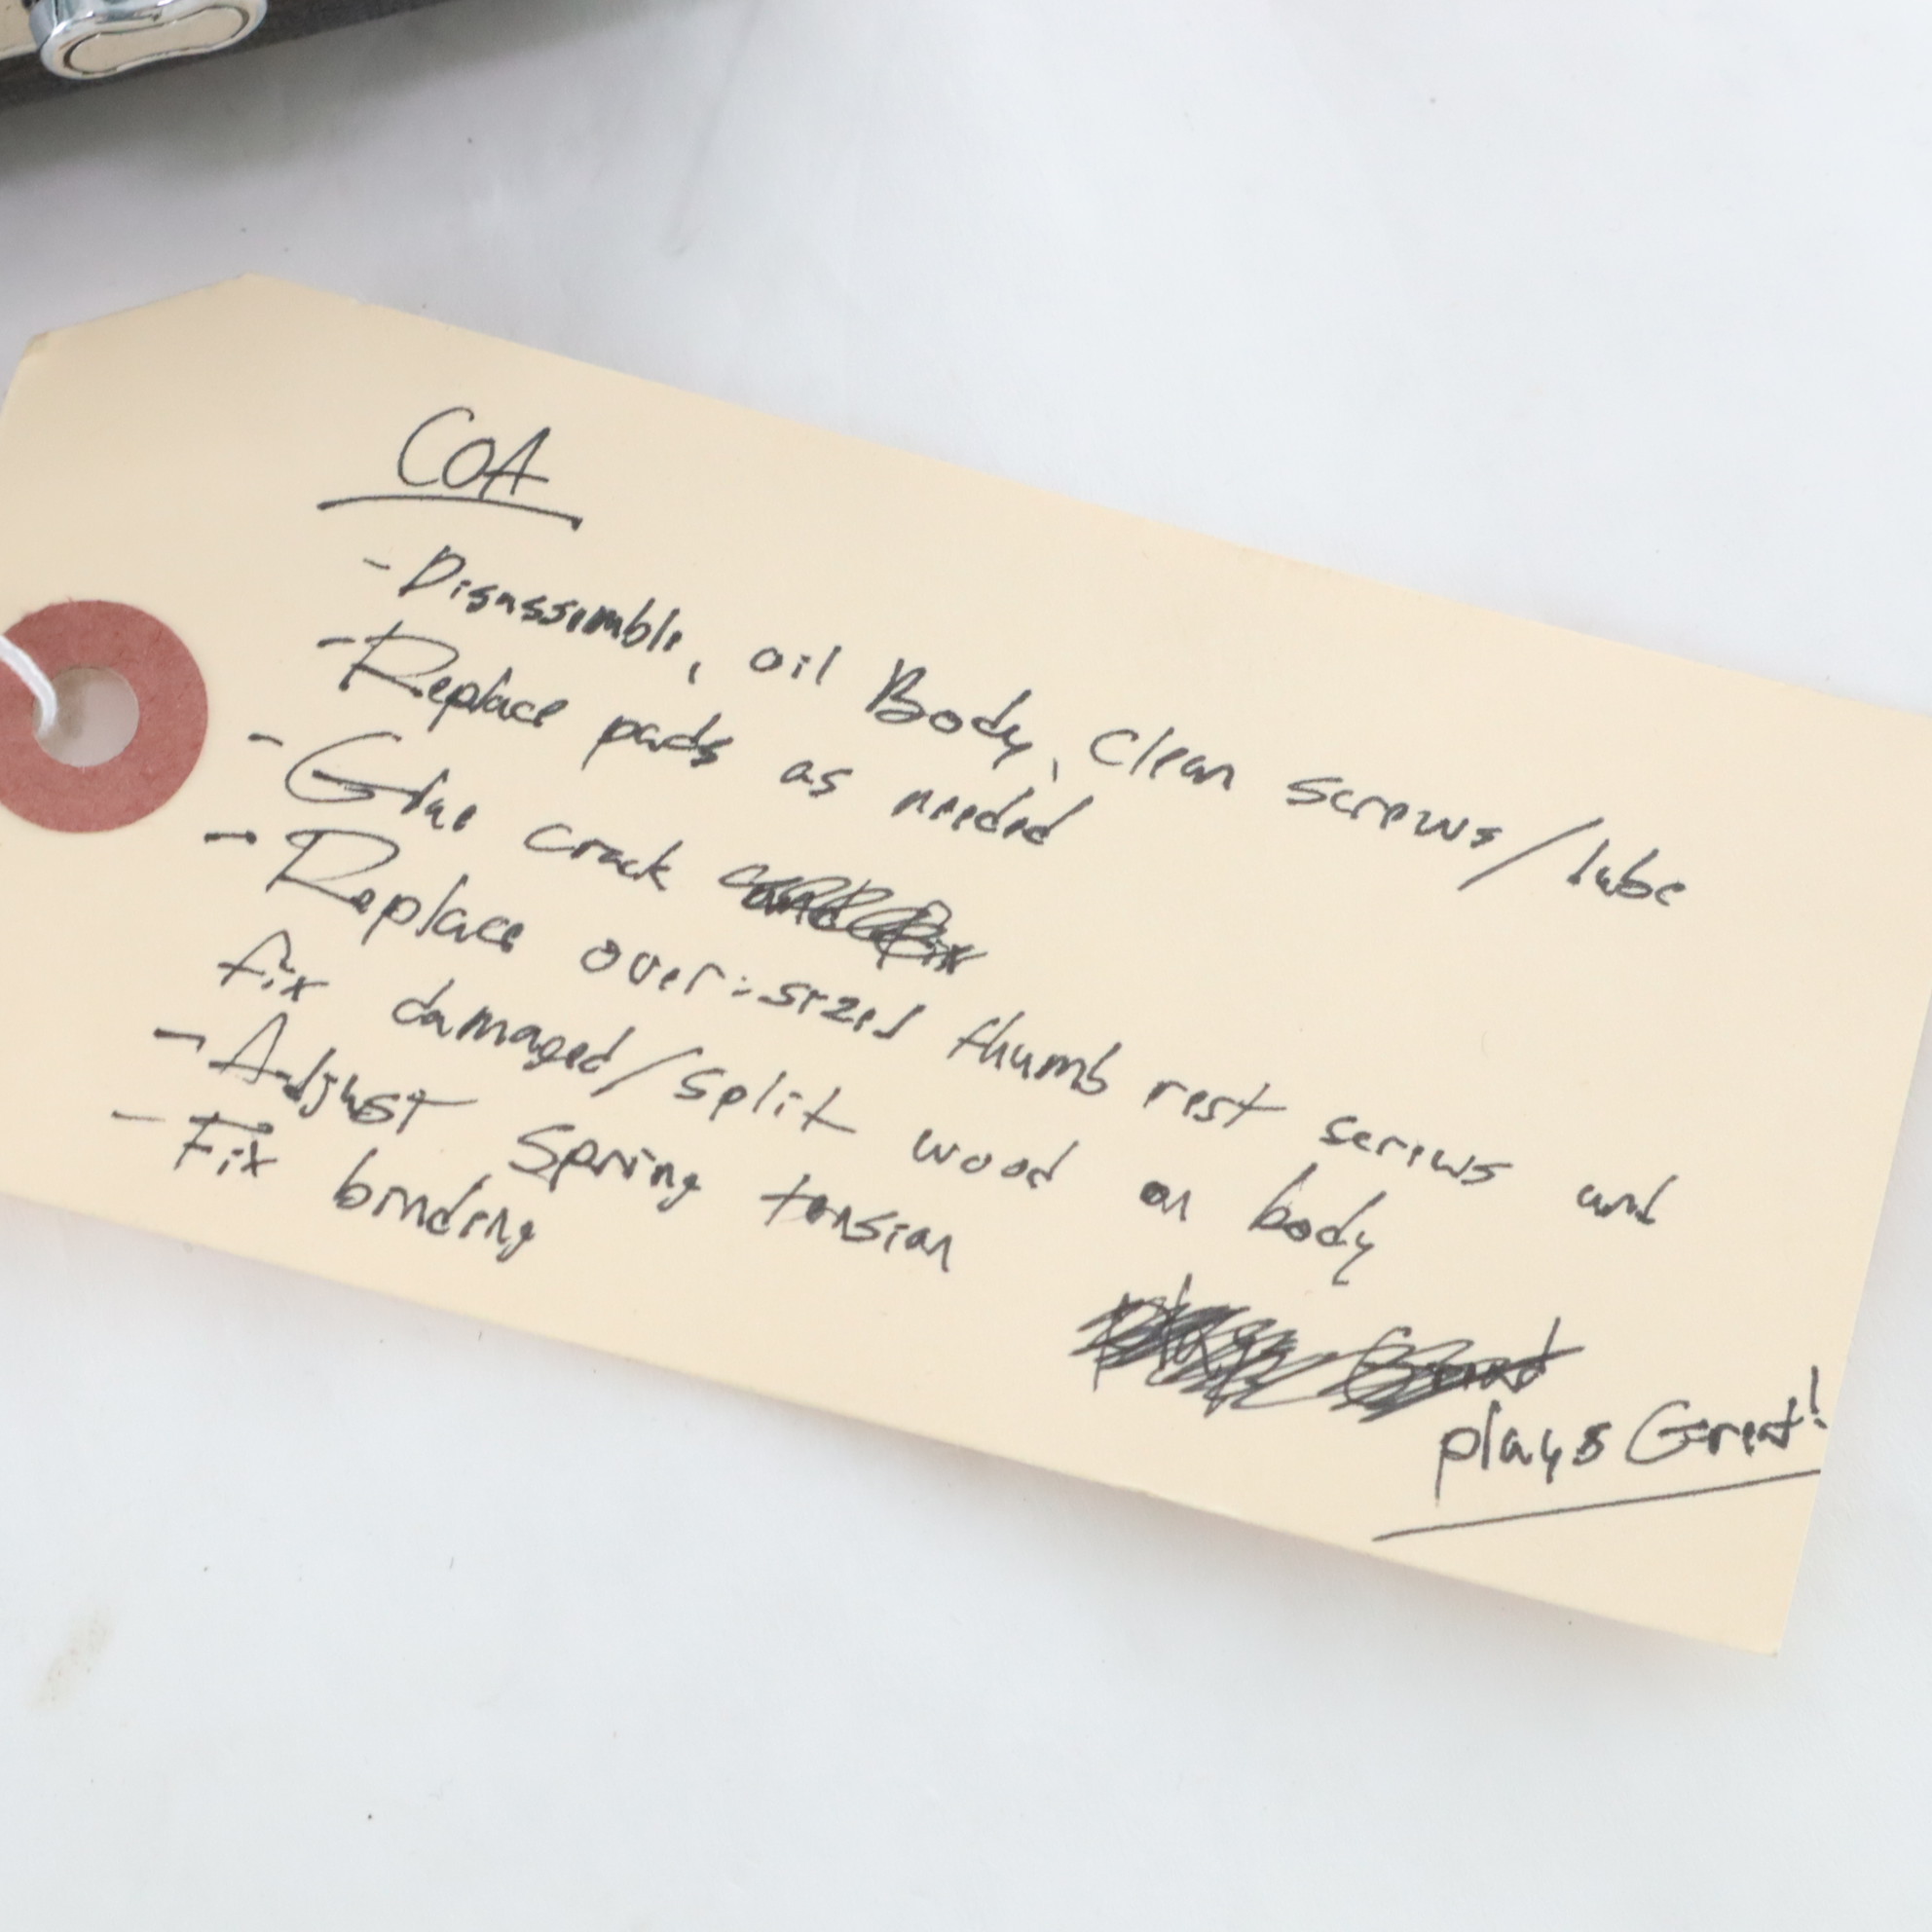 COA
- Disassemble, oil Body, clean screws/lube
- Replace pads as needed
- Glue crack
- Replace over-sized thumb rest screws and
fix damaged/split wood on body
- Adjust Spring tension
- Fix binding
plays Great!